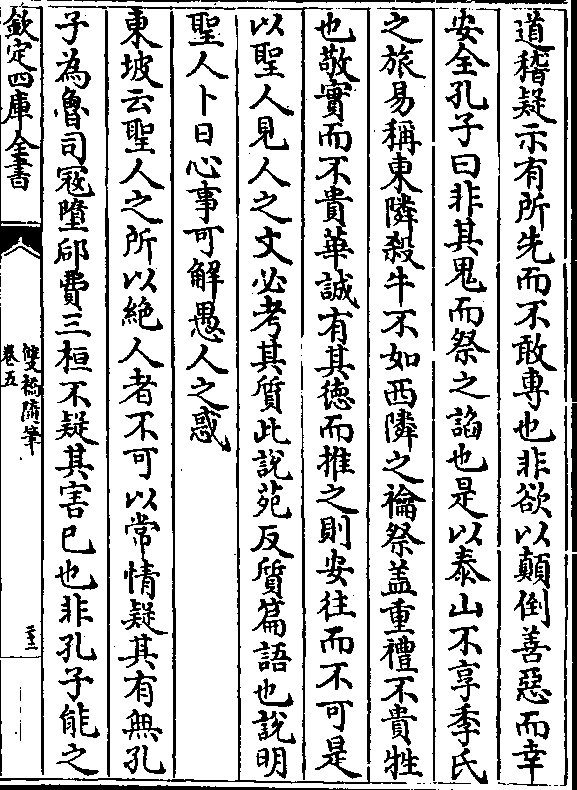 道稽疑示有所先而不敢専也非欲以顛倒善惡而幸
安全孔子曰非其鬼而祭之諂也是以泰山不享季氏
之旅易稱東隣殺牛不如西隣之禴祭盖重禮不貴牲
也敬實而不貴華誠有其徳而推之則安往而不可是
以聖人見人之文必考其質此說苑反質篇語也說明
聖人卜日心事可解愚人之惑
東坡云聖人之所以絶人者不可以常情疑其有無孔
子為魯司冦墮郈費三桓不疑其害已也非孔子能之
欽定四庫全書
雙橋隨筆
卷五